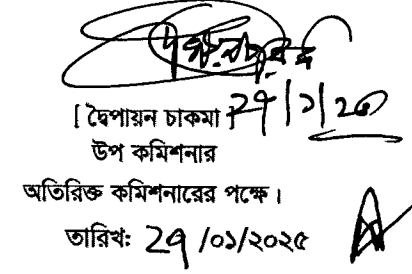 [ দ্বৈপায়ন চাকমা ]
২৭/১/২৫
উপ কমিশনার
অতিরিক্ত কমিশনারের পক্ষে।
তারিখ: ২৭ /০১/২০২৫